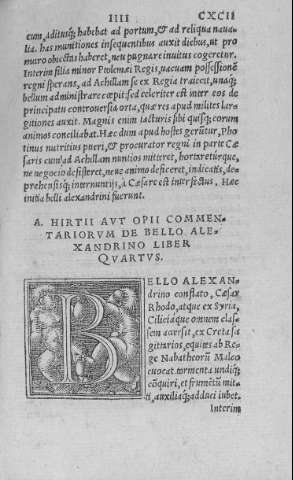 IIII CXCII
cum, aditusq; habebat ad portum, & ad reliqua naua-
lia. has munitiones insequentibus auxit diebus, ut pro
muro obiectas haberet, neu pugnare inuitus cogeretur.
Interim filia minor Ptolemæi Regis, uacuam possessionẽ
regni sperans, ad Achillam se ex Regia traiecit, unaq;
bellum administrare cœpit: sed celeriter est inter eos de
principatu controuersia orta, quæ res apud milites lar-
gitiones auxit. Magnis enim iacturis sibi quisq; eorum
animos conciliabat. Hæc dum apud hostes gerũtur, Pho
tinus nutritius pueri, & procurator regni in parte Cæ
saris cum ad Achillam nuntios mitteret, hortareturque,
ne negocio desisteret, neue animo deficeret, indicatis, de-
prehensisq; internuntijs, à Cæsare est interfectus. Hæc
initia belli alexandrini fuerunt.
A. HIRTII AVT OPII COMMEN-
TARIORVM DE BELLO ALE-
XANDRINO LIBER
QVARTVS.
BELLO ALEXAN-
drino conflato, Cæsar
Rhodo, atque ex Syria,
Ciliciaque omnem clas-
sem acersit, ex Creta sa
gittarios, equites ab Re-
ge Nabatheorũ Malco
euocat. tormenta undiq;
cõquiri, et frumẽtũ mit-
ti, auxiliaq; adduci iubet.
Interim